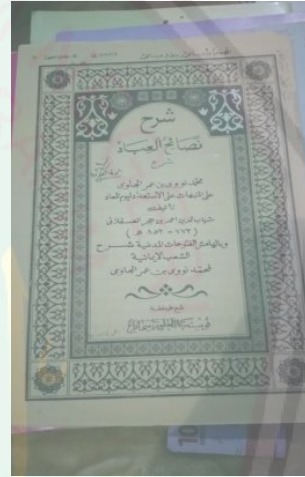 شرح
نصائح العباد
شرح
محمد نووي بن عمر الجاوي
على المنبهات على الاستعداد ليوم المعاد
تأليف
شهاب الدين أحمد بن حجر العسقلاني
( ٧٧٣ - ٨٥٢ هـ )
وبالهامش الفتوحات المدنية شرح
الشعب الإيمانية
لمحمد نووي بن عمر الجاوي